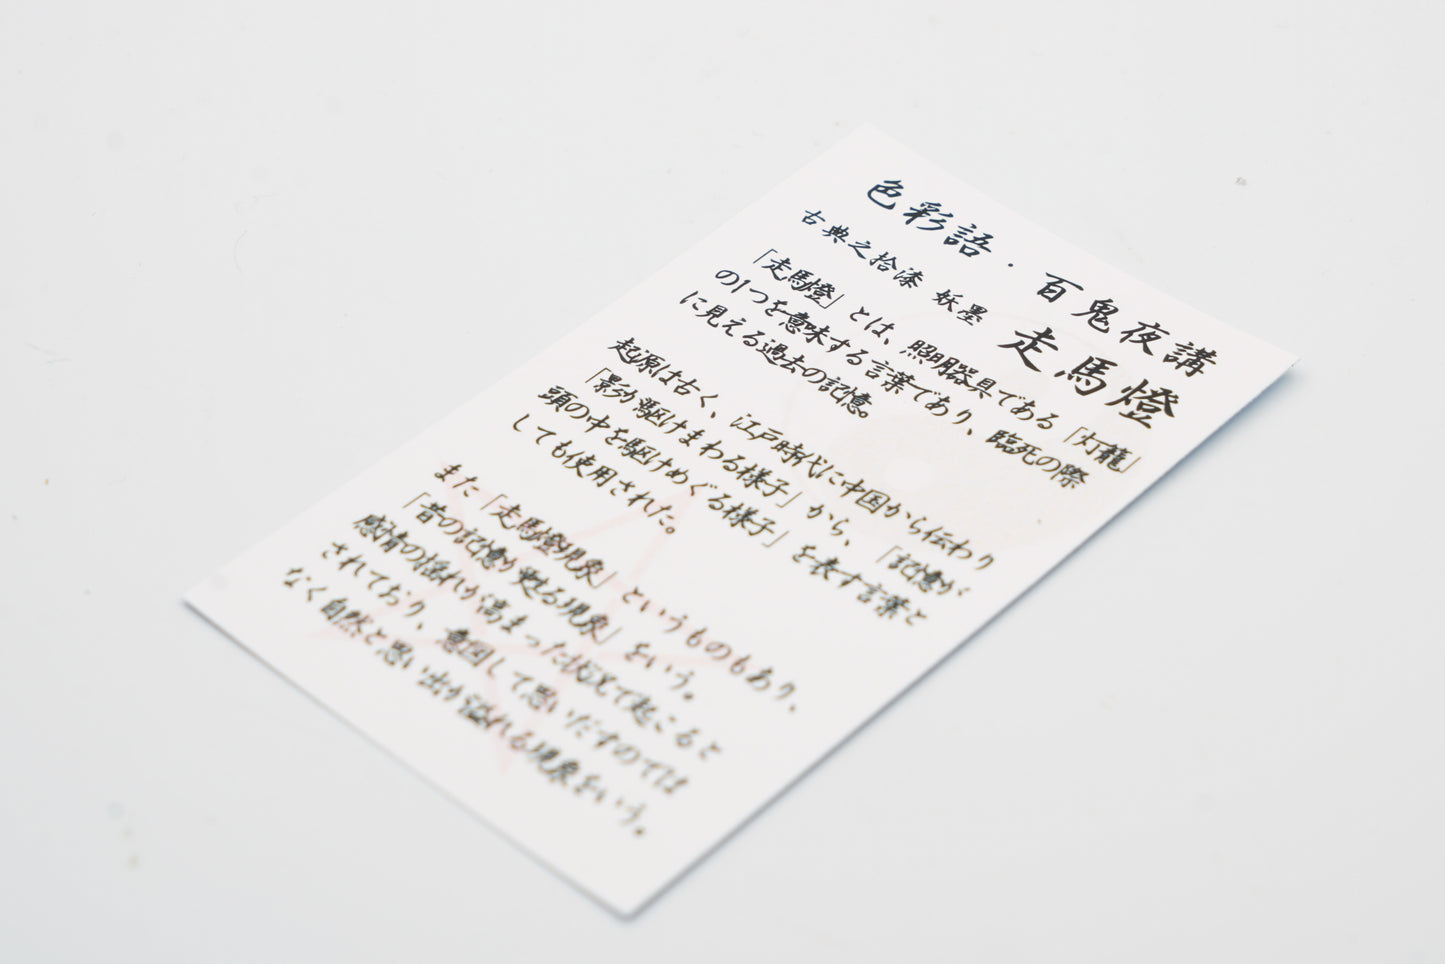 色彩語・百鬼夜講
古典之拾漆 妖墨 走馬燈
「走馬燈」とは、照明器具である「灯籠」
の1つを意味する言葉であり、臨死の際
に見える過去の記憶。
起源は古く、江戸時代に中国から伝わり
「影が駆けまわる様子」から、「記憶が
頭の中を駆けめぐる様子」を表す言葉と
しても使用された。
また「走馬燈現象」というものもあり、
「昔の記憶が甦る現象」をいう。
感情の揺れが高まった状況で起こると
されており、意図して思いだすのでは
なく自然と思い出が溢れる現象をいう。